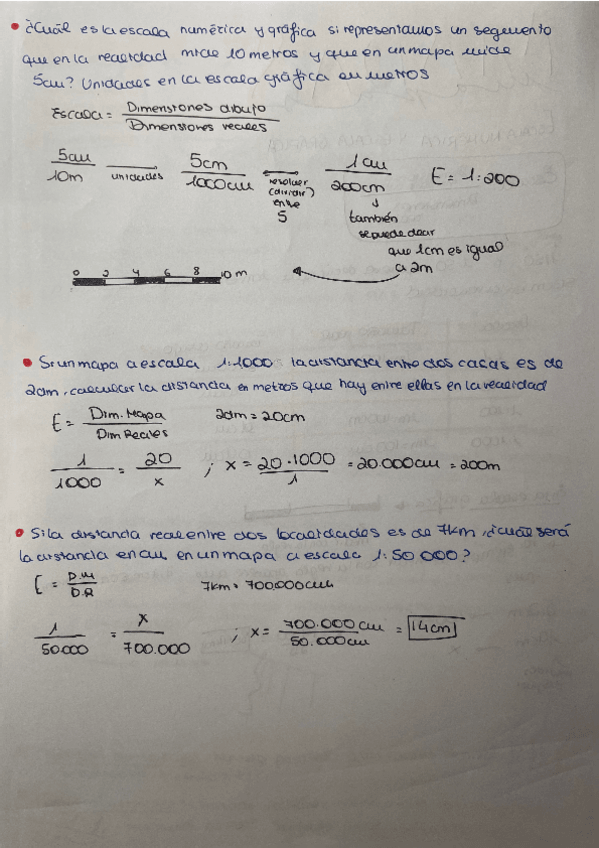 • ¿Cuál es la escala numérica y gráfica si representamos un segmento
que en la realidad mide 10 metros y que en un mapa mide
5cm? Unidades en la escala gráfica en metros
Escala = Dimensiones dibujo / Dimensiones reales
5cm / 10m → unidades 5cm / 1000cm ↔ resolver (dividir) entre 5 1cm / 200cm E = 1:200
↓
también
se puede decir
que 1cm es igual
a 2m
0 2 4 6 8 10 m
• Si un mapa a escala 1:1000 la distancia entre dos casas es de
2dm, calcular la distancia en metros que hay entre ellas en la realidad
E = Dim. Mapa / Dim Reales 2dm = 20cm
1 / 1000 = 20 / x ; x = 20 · 1000 / 1 = 20.000cm = 200m
• Si la distancia real entre dos localidades es de 7km ¿cuál será
la distancia en cm en un mapa a escala 1:50 000?
E = D.M / D.R 7km = 700.000cm
1 / 50000 = x / 700.000 ; x = 700.000cm / 50.000cm = 14cm